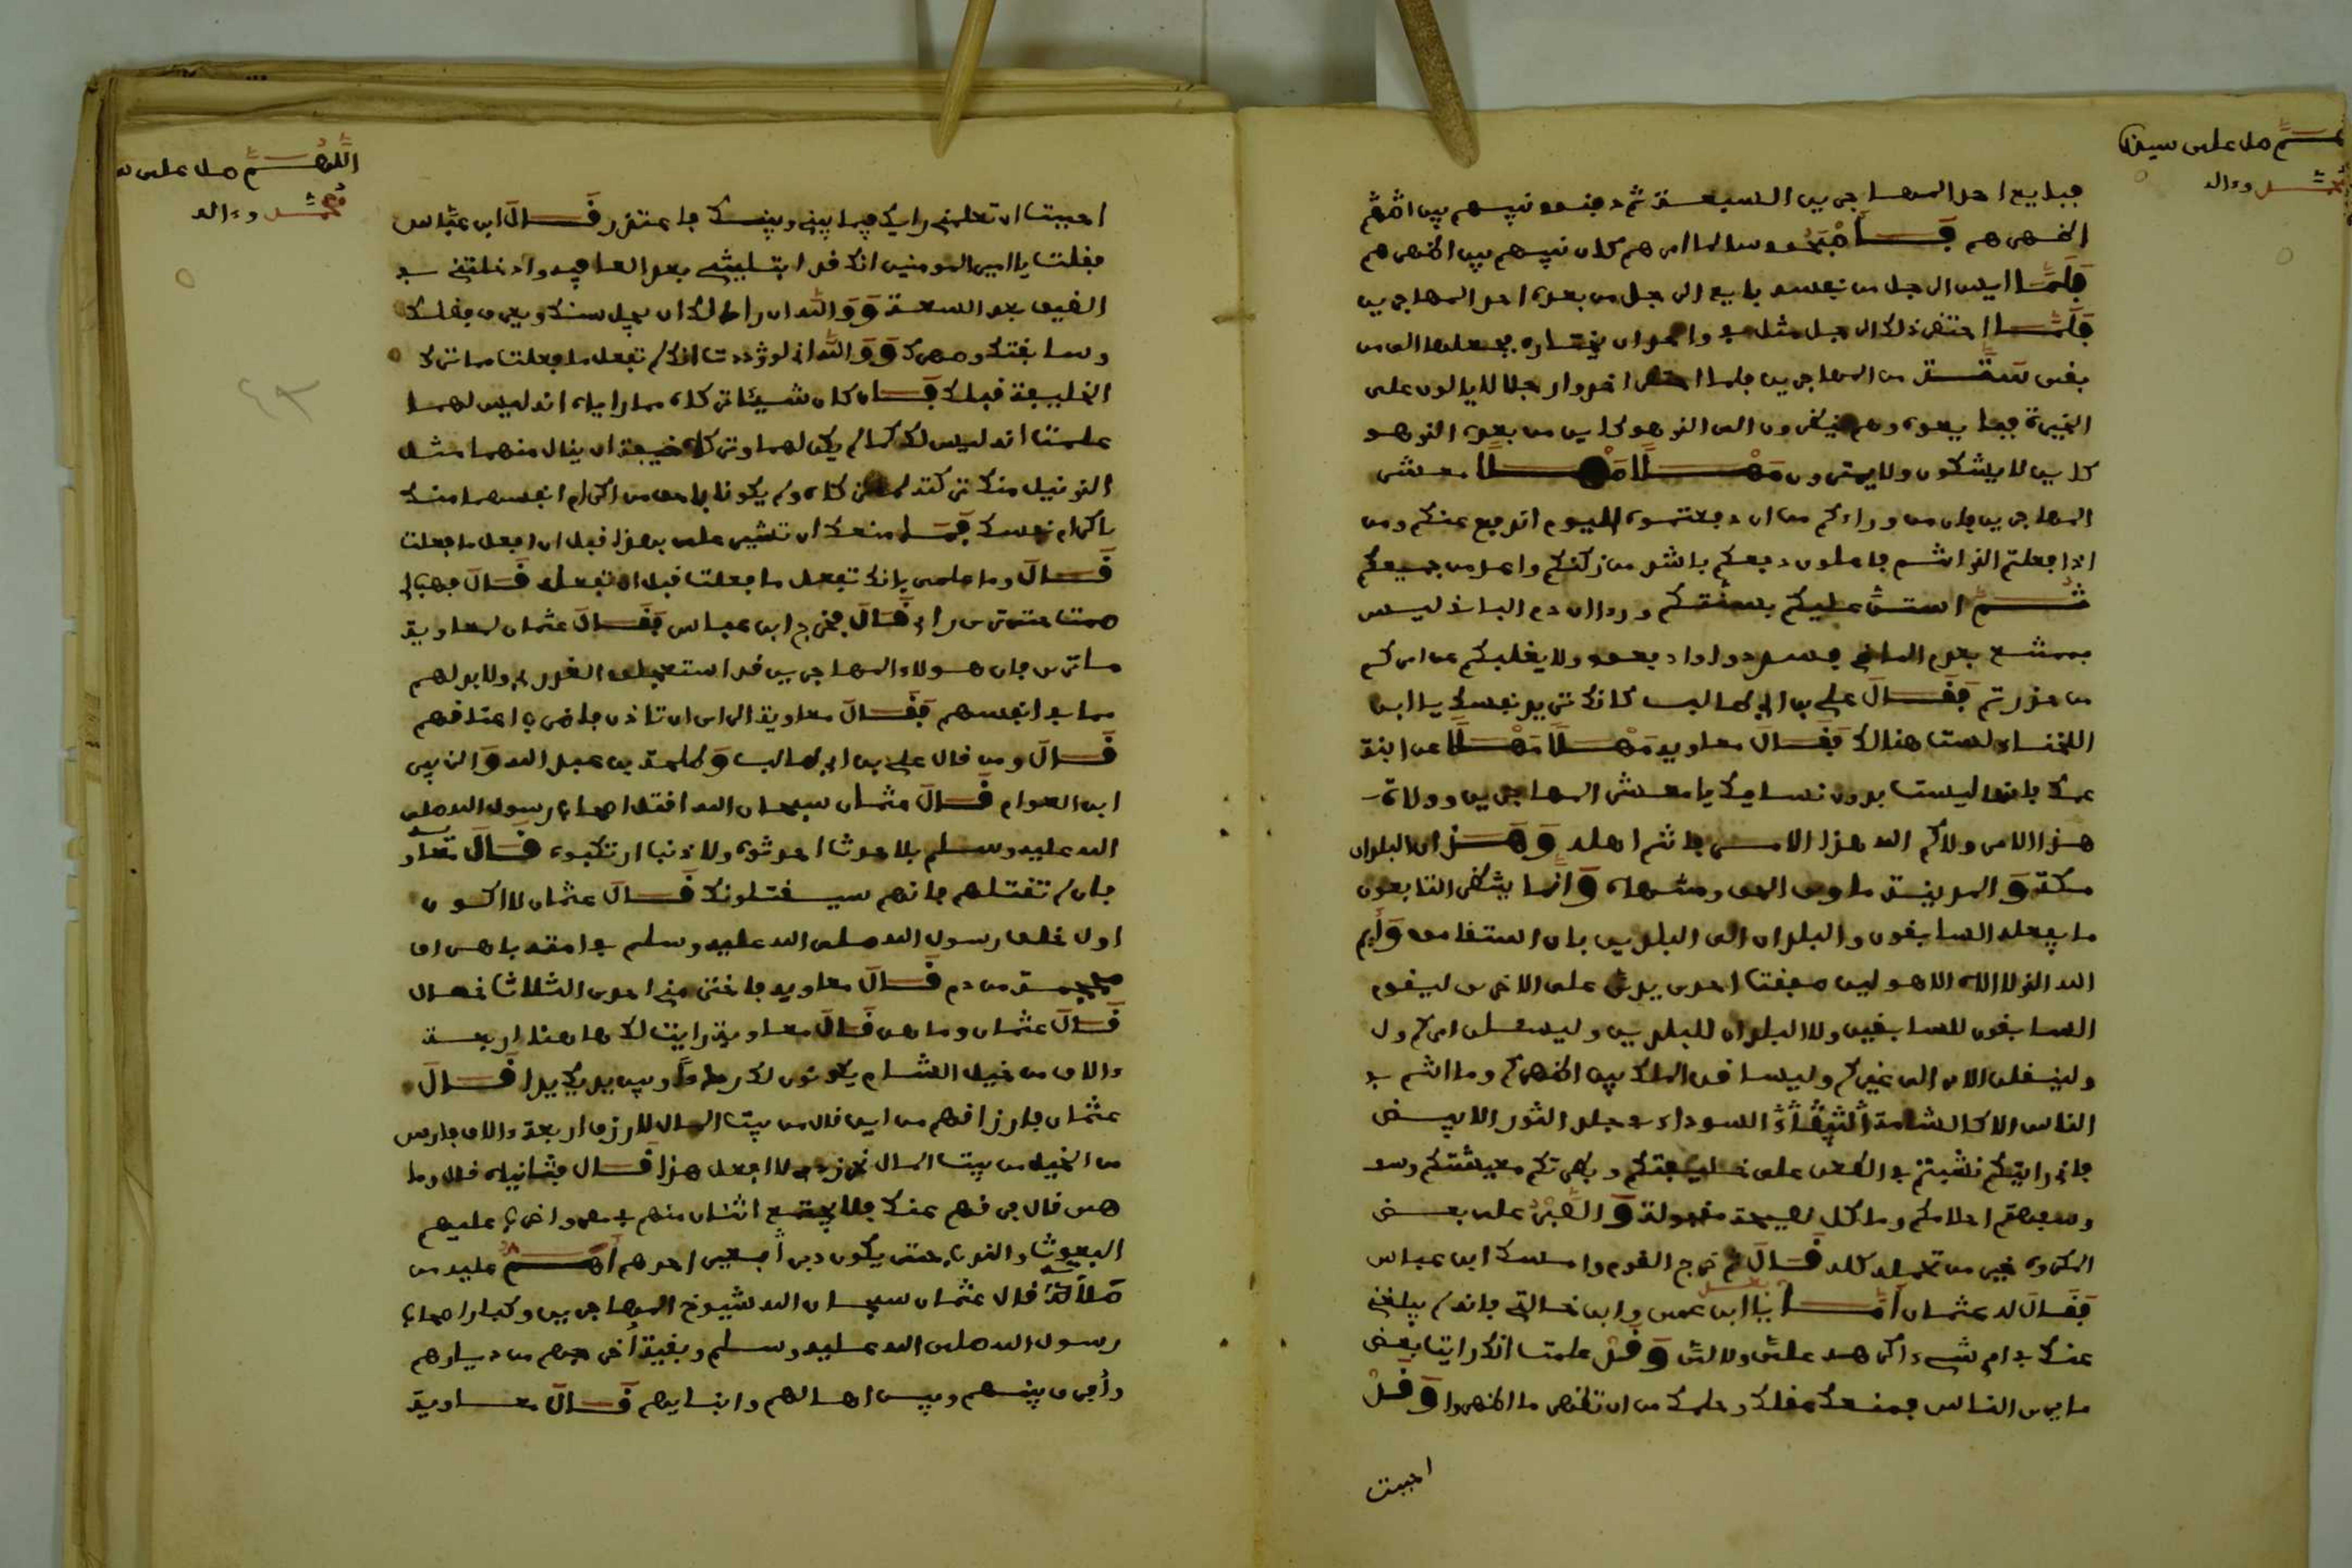 اللهم صل على سيدنا
محمد وءاله
فبايع احد المهاجرين السبعة ثم دفنوه نبيهم بين اظهر
اظهرهم فاصبحوا سالما امرهم كان نبيهم بين اظهرهم
فلما ايس الرجل من نفسه بايع الرجل من بعده احد المهاجرين
فلما احتضر ذلك الرجل شك في واحد ان يختاره فجعلها الى من
بقى ستة من المهاجرين فاخذوا رجلا لا يالون على
الخيرة فبايعوه وهم ينظرون الى الذى هو كاين من بعده الذى هو
كاين لا يشكون ولا يمترون مهلا مهلا معشر
المهاجرين فان من وراءكم من ان دفعتموه اليوم اندفع عنكم ومن
اذا فعلتم الذى انتم فاعلون دفعكم باشد من ركنكم واعد من جمعكم
ثم استن عليكم بسنتكم وراى ان دم الباقى ليس
بممتنع بعد دم الماضى فسددوا وارفقوا لا يغلبكم على امركم
من حذرتم فقال على بن ابى طالب كانك تريد نفسك يا ابن
اللخناء لست هنالك فقال معاوية مهلا مهلا عن ابنة
عمك فانها ليست بدون نسايك يا معشر المهاجرين وولاة
هذا الامر ولاكم الله هذا الامر فانتم اهله وهذان البلدان
مكة والمدينة ماوى الحق ومنتهاه وانما ينظر التابعون
ما يفعله السابقون والبلدان الى البلدين فان استقاموا وايم
الله الذى لا اله الا هو لين صفقت احدى يدى على الاخرى ليقوم
السابقون للسابقين ولا البلدان للبلدين وليسلبن امركم ول
ولينقلن الامر الى غيركم وليسا قن الملك بين اظهركم وما انتم في
الناس الا كالشامة السوداء في جلد الثور الابيض
فانى رايتكم نشبتم في الطعن على خليفتكم وبطرتكم معيشتكم وسفه
وسفهتم احلامكم وما كل نصيحة مقبولة والصبر على بعض
المكروه خير من تحمله كله قال ثم خرج القوم وامسك ابن عباس
فقال له عثمان اما بعد يا ابن عمى ويا ابن خالتى فانه لم يبلغنى
عنك في امرى شىء اكرهه علي ولا لى وقد علمت انك رايت بعض
ما يرى الناس فمنعك عقلك وحلمك من ان تظهر ما اظهروا وقد
احببت
اللهم صل على س
محمد وءاله
احببت ان تعلمنى رايك فيما بينى وبينك فاعتذر قال ابن عباس
فقلت يا امير المومنين انك قد ابتليتنى بعد العافية وادخلتنى في
الضيق بعد السعة ووالله ان راى لك ان يجل سنك ويعرف قدرك
وسابقتك وصهرك ووالله انى لوددت انك لم تفعل ما فعلت مما ترك
الخليفة قبلك فان كان شيئا تركاه مما رايا انه ليس لهما
علمت انه ليس لك كما لم يكن لهما وتركاه خيفة ان ينال منهما مثل
الذى نيل منك تركته لما تركاه ولم يكونا باحق من اكرام انفسهما منك
باكرام نفسك قال فما منعك ان تشير على بهذا قبل ان افعل ما فعلت
قال وما علمى بانك تفعل ما فعلت قبل ان تفعل قال فهب لى
صمتا حتى ترى راى قال فخرج ابن عباس فقال عثمان لمعاوية
ما ترى فان هولاء المهاجرين قد استعجلوا القدر ولابد لهم
مما في انفسهم فقال معاوية الراى ان تاذن لى فاضرب اعناقهم
قال ومن قال على بن ابى طالب وطلحة بن عبد الله والزبير
ابن العوام قال عثمان سبحان الله اقتل اصحاب رسول الله صلى
الله عليه وسلم بلا حدث احدثوه ولا ذنب ارتكبوه قال معاوية
فان لم تقتلهم فانهم سيقتلونك قال عثمان لا اكون
اول خلف رسول الله صلى الله عليه وسلم في امته باهراق
محجمة من دم قال معاوية فاختر منى احدى الثلاث خصال
قال عثمان وما هى قال معاوية ارتب لك هاهنا اربعة
ءالاف من خيل الشام يكونون لك ردءا وبين يديك يدا قال
عثمان فارزاقهم من اين قال من بيت المال قال ارزق اربعة ءالاف فارس
من الخيل من بيت المال لا افعل هذا قال فثانية قال وما
هى قال فرقهم عنك فلا يجتمع اثنان منهم في مصر واحد واضرب عليهم
البعوث والندب حتى يكون دبر بعير احدهم اهم عليه من
صلاته قال عثمان سبحان الله شيوخ المهاجرين وكبار اصحاب
رسول الله صلى الله عليه وسلم وبقية اخرجهم من ديارهم
وافرق بينهم وبين اهاليهم وابنايهم قال معاوية